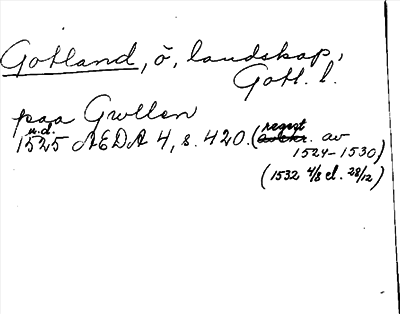 Gotland, ö, landskap,
Gotl. l.
paa Gwllen
u.d.
1525 AEDA 4, s. 420. (regest av
1524-1530)
(1532 4/8 el. 28/12)